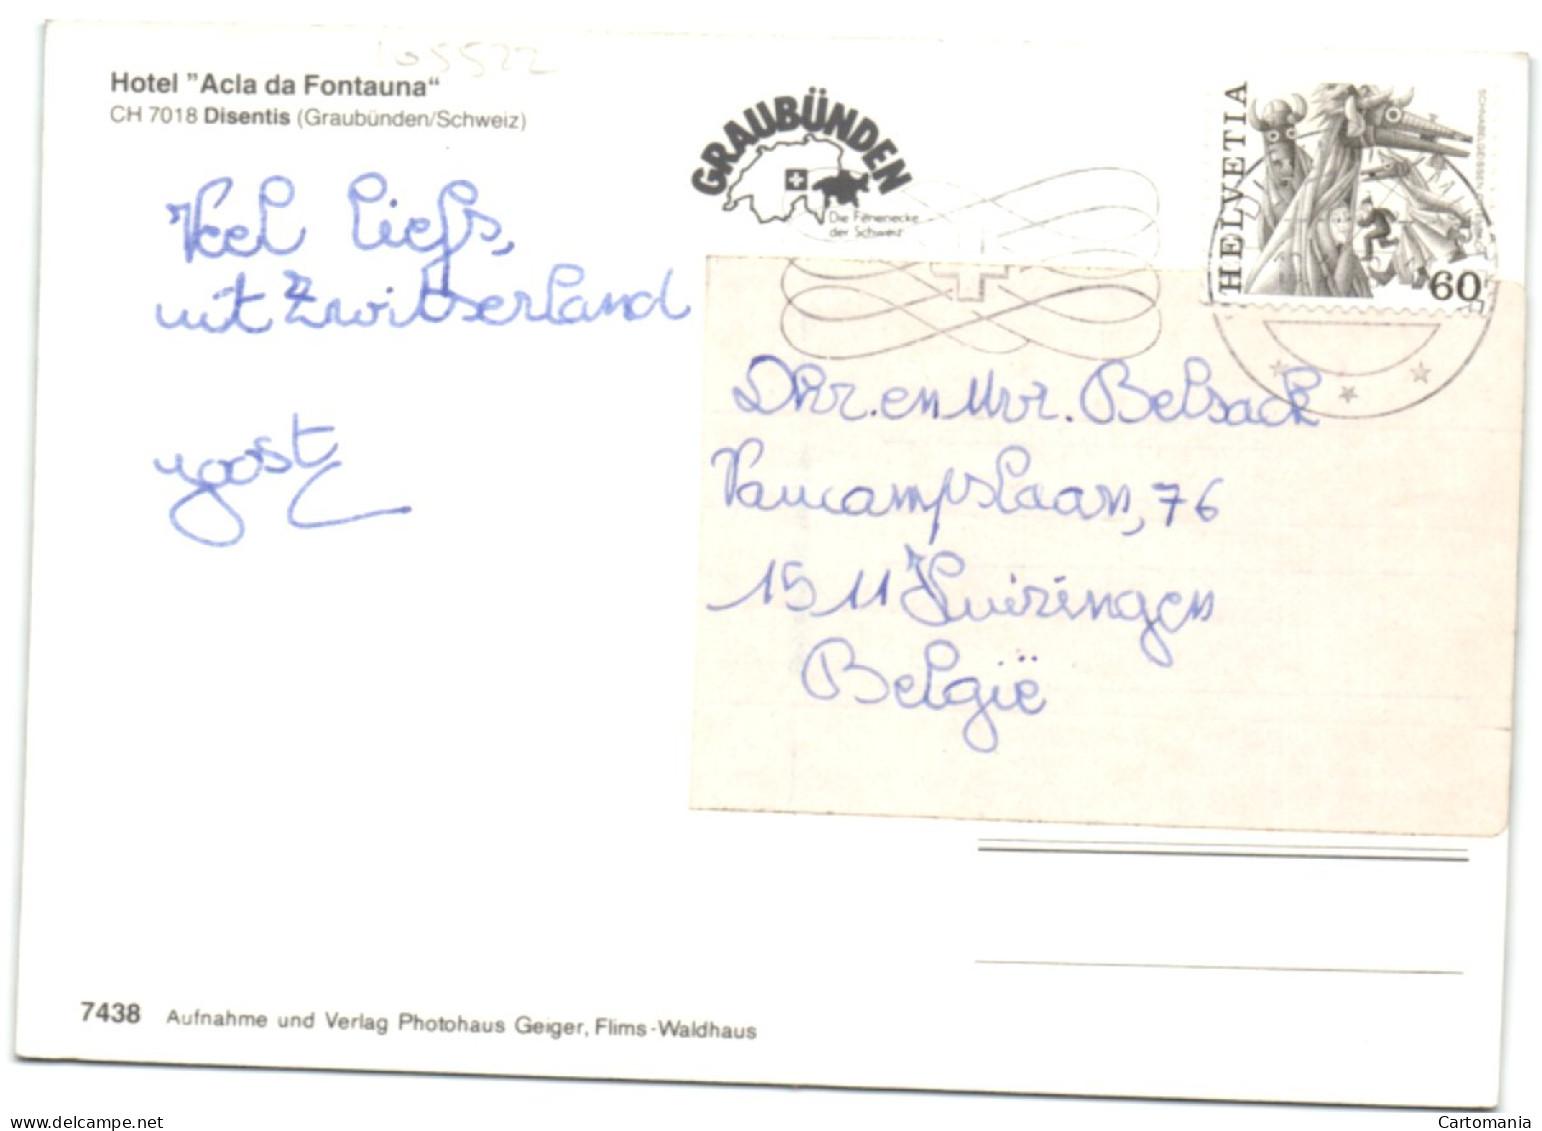 105522
Hotel "Acla da Fontauna"
CH 7018 Disentis (Graubünden/Schweiz)
GRAUBÜNDEN
Die Ferienecke
der Schweiz
HELVETIA
60
Veel liefs,
uit Zwitserland
yoost
Dhr. en Mvr. Belsack
Vaucampslaan, 76
1511 Huizingen
België
7438 Aufnahme und Verlag Photohaus Geiger, Flims-Waldhaus
delcampe.net
Cartomania